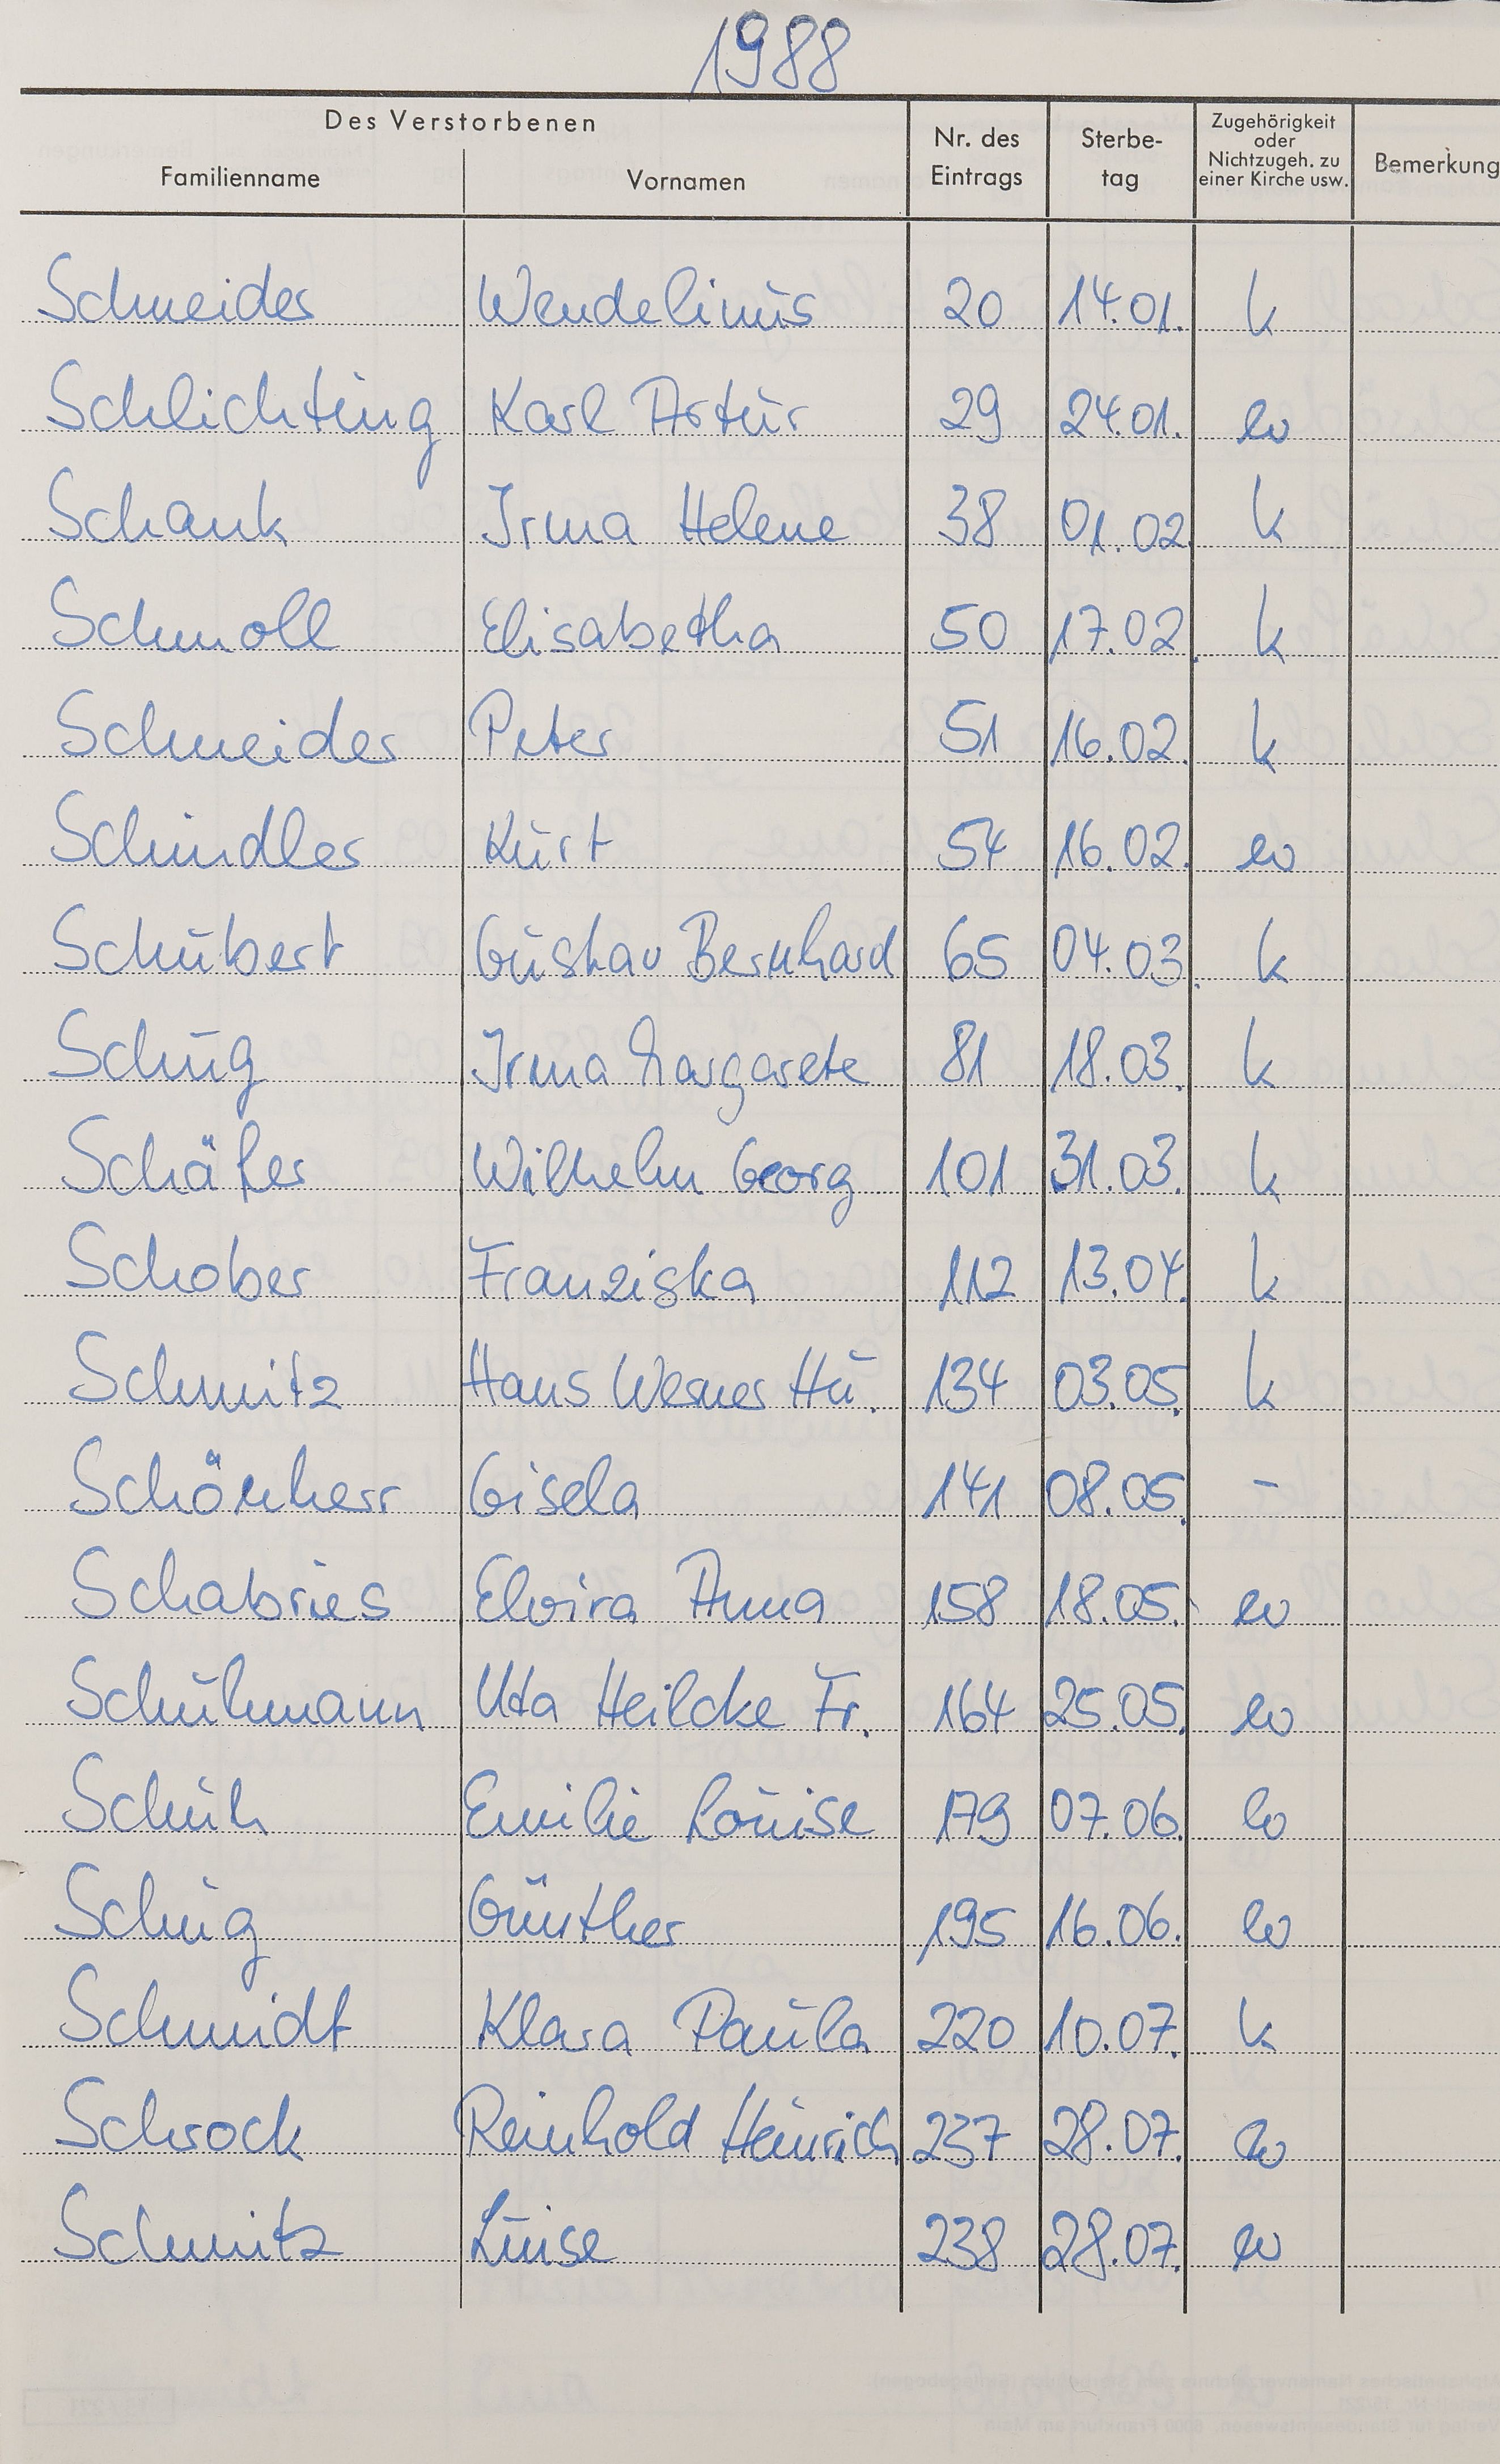 1988
Des Verstorbenen
Familienname Vornamen Nr. des Eintrags Sterbe-tag Zugehörigkeit oder Nichtzugeh. zu einer Kirche usw. Bemerkung
Schneider Wendelinus 20 14.01. k
Schlichting Karl Artur 29 24.01. ev
Schank Irma Helene 38 01.02. k
Schmoll Elisabetha 50 17.02. k
Schneider Peter 51 16.02. k
Schindler Kurt 54 16.02. ev
Schubert Gustav Bernhard 65 04.03. k
Schug Irma Margarete 81 18.03. k
Schäfer Wilhelm Georg 101 31.03. k
Schober Franziska 112 13.04. k
Schmitz Hans Werner Hu. 134 03.05. k
Schönherr Gisela 141 08.05. -
Schabries Elvira Anna 158 18.05. ev
Schuhmann Uta Heilcke Fr. 164 25.05. ev
Schuh Emilie Louise 179 07.06. ev
Schug Günther 195 16.06. ev
Schmidt Klara Paula 220 10.07. k
Schrock Reinhold Heinrich 237 28.07. ev
Schmitz Luise 238 28.07. ev